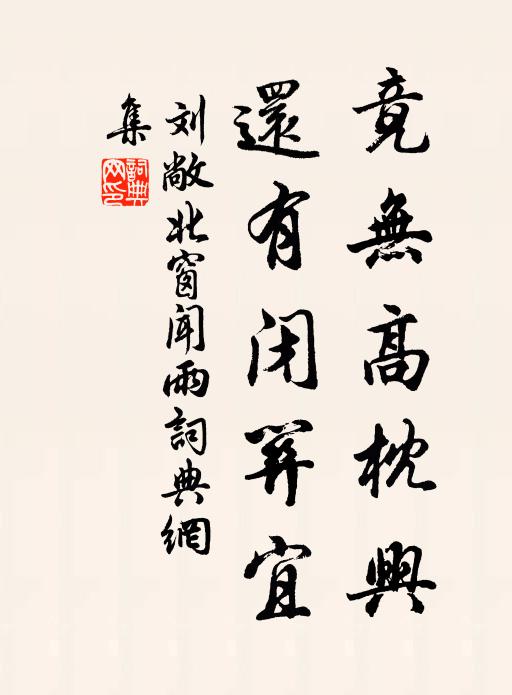 竟無高枕興
還有閉關宜
刘敞北窗闻雨詞典網
集
詞典網印